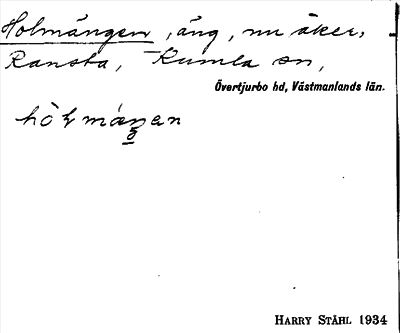 Holmängen, äng, nu åker,
Ransta, Kumla sn,
Övertjurbo hd, Västmanlands län.
HARRY STÅHL 1934